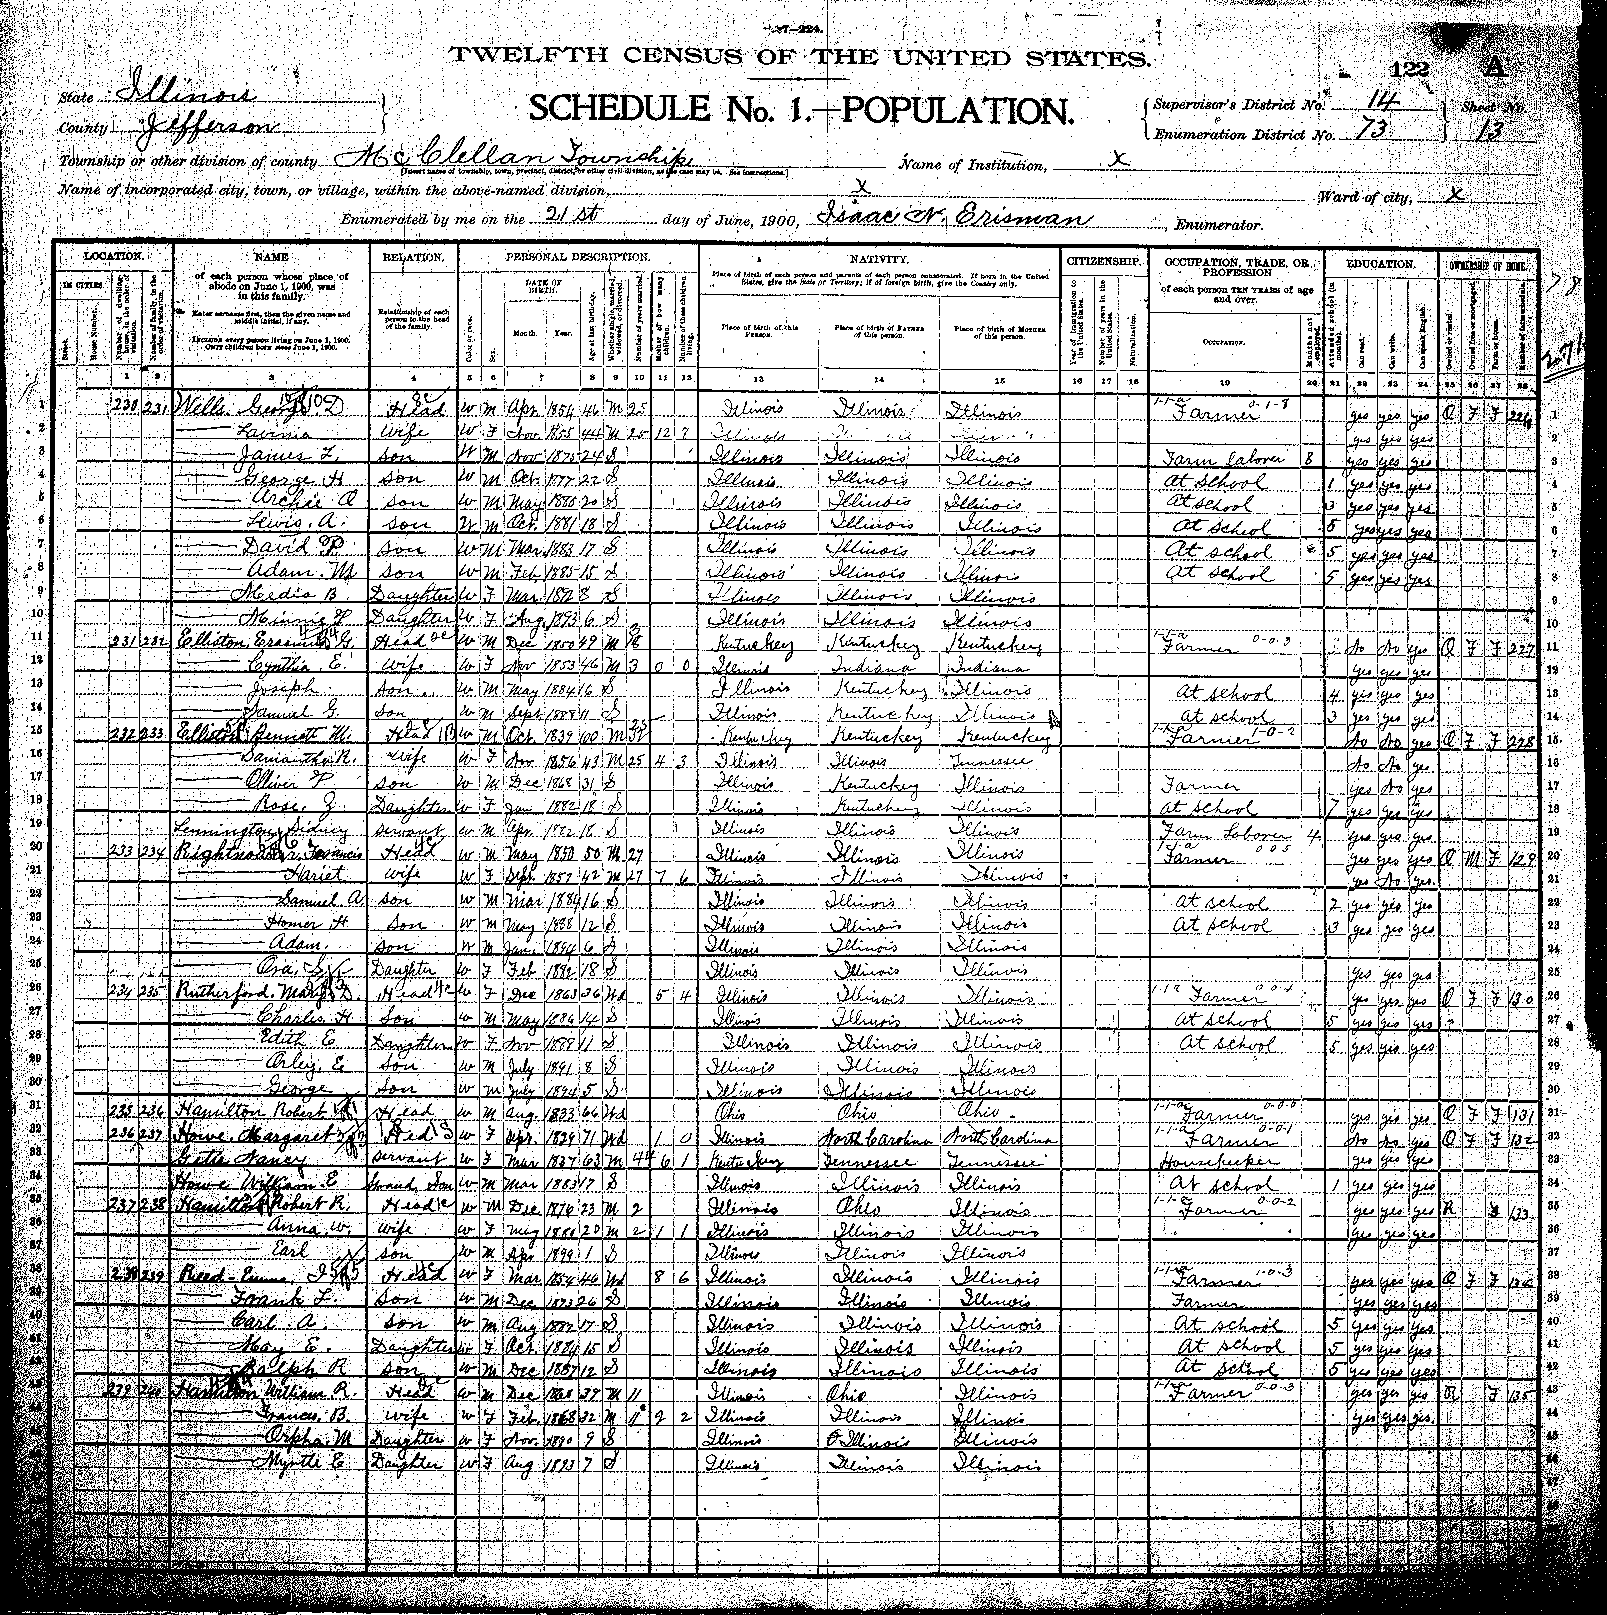 TWELFTH CENSUS OF THE UNITED STATES.
122 A
State Illinois
County Jefferson
SCHEDULE No. 1.—POPULATION.
Supervisor's District No. 14
Enumeration District No. 73
Sheet No. 13
Township or other division of county McClellan Township
Name of Institution, X
[Insert name of township, town, precinct, district, or other civil division, as the case may be. See instructions.]
Name of incorporated city, town, or village, within the above-named division, X
Ward of city, X
Enumerated by me on the 21st day of June, 1900, Isaac N. Erisman, Enumerator.
LOCATION. NAME RELATION. PERSONAL DESCRIPTION. NATIVITY. CITIZENSHIP. OCCUPATION, TRADE, OR PROFESSION EDUCATION. OWNERSHIP OF HOME.
IN CITIES. of each person whose place of abode on June 1, 1900, was in this family. Relationship of each person to the head of the family. DATE OF BIRTH. Place of birth of each person and parents of each person enumerated. If born in the United States, give the State or Territory; if of foreign birth, give the Country only. of each person TEN YEARS of age and over.
Enter surname first, then the given name and middle initial, if any.
INCLUDE every person living on June 1, 1900. OMIT children born since June 1, 1900.
Month. Year. Place of birth of this PERSON. Place of birth of FATHER of this person. Place of birth of MOTHER of this person. OCCUPATION.
1 2 3 4 5 6 7 8 9 10 11 12 13 14 15 16 17 18 19 20 21 22 23 24 25 26 27 28
1 230 231 Wells George D Head W M Apr 1854 46 M 25 Illinois Illinois Illinois Farmer yes yes yes O F F 1
2 Lavinia Wife W F Nov 1855 44 M 25 12 7 Illinois yes yes yes 2
3 James L. Son W M Nov 1875 24 S Illinois Illinois Illinois Farm laborer 8 yes yes yes 3
4 George H Son W M Oct 1877 22 S Illinois Illinois Illinois At School 1 yes yes yes 4
5 Archie O Son W M May 1880 20 S Illinois Illinois Illinois At school 3 yes yes yes 5
6 Lewis. A. Son W M Oct 1881 18 S Illinois Illinois Illinois At school 5 yes yes yes 6
7 David Son W M Mar 1883 17 S Illinois Illinois Illinois At school 5 yes yes yes 7
8 Adam. M Son W M Feb 1885 15 S Illinois Illinois Illinois At school 5 yes yes yes 8
9 Media B. Daughter W F Mar 1892 8 S Illinois Illinois Illinois 9
10 Minnie Daughter W F Aug 1893 6 S Illinois Illinois Illinois 10
11 231 232 Elliston, G. Head W M Dec 1850 49 M Kentuckey Kentuckey Kentuckey Farmer No No yes O F F 227 11
12 Cynthia E. Wife W F Nov 1853 46 M 3 0 0 Illinois Indiana Indiana yes yes yes 12
13 Joseph Son W M May 1884 16 S Illinois Kentuckey Illinois At school 4 yes yes yes 13
14 Samuel G. Son W M Sept 1888 11 S Illinois Kentuckey Illinois At school 3 yes yes yes 14
15 232 233 Elliston Bennett M. Head W M Oct. 1839 60 M Kentuckey Kentuckey Kentuckey Farmer No No yes O F F 228 15
16 Samantha R. Wife W F Nov 1856 43 M 25 4 3 Illinois Illinois Tennessee No No yes 16
17 Oliver Son W M Dec 1868 31 S Illinois Kentuckey Illinois Farmer yes No yes 17
18 Rosa Z. Daughter W F Jan 1882 18 S Illinois Kentuckey Illinois At school 7 yes yes yes 18
19 Lennington Sidney Servant W M Apr 1882 18 S Illinois Illinois Illinois Farm Laborer 4 yes yes yes 19
20 233 234 Francis Head W M May 1850 50 M 27 Illinois Illinois Illinois Farmer yes yes yes O M F 129 20
21 Hariet Wife W F Sept 1857 42 M 27 7 6 Illinois Illinois Illinois yes No yes 21
22 Samuel A Son W M Mar 1884 16 S Illinois Illinois Illinois At school 2 yes yes yes 22
23 Homer H Son W M May 1888 12 S Illinois Illinois Illinois At school 3 yes yes yes 23
24 Adam. Son W M Jan. 1894 6 S Illinois Illinois Illinois 24
25 Ora, Daughter W F Feb 1882 18 S Illinois Illinois Illinois yes yes yes 25
26 234 235 Rutherford, Mary D. Head W F Dec 1863 36 Wd 5 4 Illinois Illinois Illinois Farmer yes yes yes O F F 130 26
27 Charlie H Son W M May 1886 14 S Illinois Illinois Illinois At school 5 yes yes yes 27
28 Edith E Daughter W F Nov 1888 11 S Illinois Illinois Illinois At school 5 yes yes yes 28
29 Orley, E Son W M July 1891 8 S Illinois Illinois Illinois 29
30 George Son W M July 1894 5 S Illinois Illinois Illinois 30
31 235 236 Hamilton Robert Head W M Aug. 1833 66 Wd Ohio Ohio Ohio Farmer yes yes yes O F F 131 31
32 236 237 Howe, Margaret Head W F Apr. 1829 71 Wd 1 0 Illinois North Carolina North Carolina Farmer No No yes O F F 132 32
33 Nancy Servant W F Mar 1837 63 M 44 6 1 Kentuckey Tennessee Tennessee Housekeeper yes yes yes 33
34 Howe William E Grand Son W M Mar 1883 17 S Illinois Illinois Illinois At school 1 yes yes yes 34
35 237 238 Hamilton Robert R. Head W M Dec 1876 23 M 2 Illinois Ohio Illinois Farmer yes yes yes R 133 35
36 Anna W. Wife W F May 1880 20 M 2 1 1 Illinois Illinois Illinois yes yes yes 36
37 Earl Son W M Apr 1899 1 S Illinois Illinois Illinois 37
38 238 239 Reed - Emma, Head W F Mar 1854 46 Wd 8 6 Illinois Illinois Illinois Farmer yes yes yes O F F 38
39 Frank L. Son W M Dec 1873 26 S Illinois Illinois Illinois Farmer yes yes yes 39
40 Carl A. Son W M Aug 1882 17 S Illinois Illinois Illinois At school 5 yes yes yes 40
41 May E. Daughter W F Oct 1884 15 S Illinois Illinois Illinois At school 5 yes yes yes 41
42 Ralph R Son W M Dec 1887 12 S Illinois Illinois Illinois At school 5 yes yes yes 42
43 239 240 Hamilton William R. Head W M Dec 1860 39 M 11 Illinois Ohio Illinois Farmer yes yes yes R F 135 43
44 Frances. B. Wife W F Feb. 1868 32 M 11 2 2 Illinois Illinois Illinois yes yes yes 44
45 Orpha. M Daughter W F Nov. 1890 9 S Illinois Illinois Illinois 45
46 Myrtle E Daughter W F Aug 1893 7 S Illinois Illinois Illinois